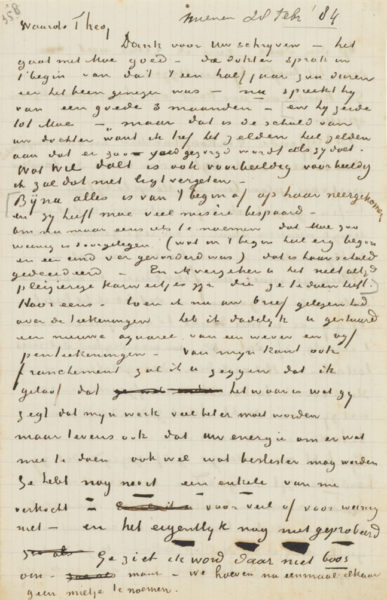 358
Nuenen 20 Feb' 84
Waarde Theo,
Dank voor Uw schrijven – het
gaat met Moe goed – de dokter sprak in
't begin van dat 't een half jaar zou duren
eer het been genezen was – nu spreekt hij
van een goede 3 maanden – en hij zeide
tot Moe – maar dat is de schuld van
uw dochter want ik tref het zelden het zelden
aan dat er zoo goed gezorgd wordt als zij doet.
Wat Wil doet is ook voorbeeldig voorbeeldig
ik zal dat niet ligt vergeten. –
Bijna alles is van 't begin af op haar neergekomen
en zij heeft moe veel misère bespaard –
om nu maar eens iets te noemen dat Moe zoo
weinig is doorgelegen (wat in 't begin heel erg begon
en een eind ver gevorderd was) dat is haar schuld
gedecideerd – En ik verzeker u het niet altijd
pleizierige karweitjes zijn die ze te doen heeft.
Hoor eens – toen ik nu uw brief gelezen had
over de teekeningen heb ik dadelijk u gestuurd
een nieuwe aquarel van een wever en vijf
penteekeningen – van mijn kant ook
franchement zal ik u zeggen dat ik
geloof dat het waar is wat gij
zegt dat mijn werk veel beter moet worden
maar tevens ook dat uw energie om er wat
mee te doen ook wel wat beslister mag worden
Ge hebt nog nooit een enkele van me
verkocht – voor veel of voor weinig
niet – en het eigentlyk nog niet geprobeerd
Ge ziet ik word daar niet boos
om – maar – we hoeven nu eenmaal elkaar
geen mietje te noemen.